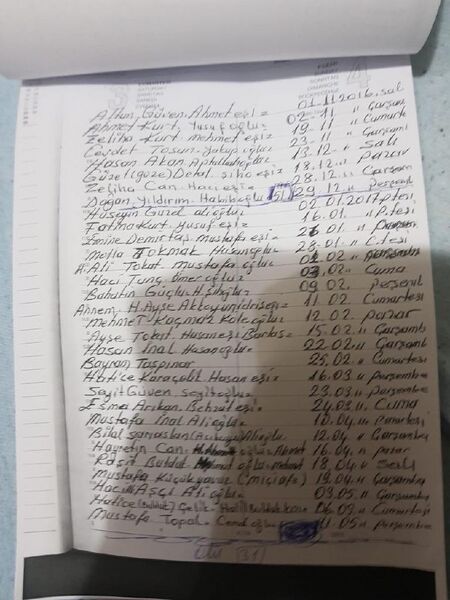 Altun Güven Ahmet eşi = 01-11-2016. salı
Ahmet Kurt. Yusufoğlu = 02-11 " Çarşam
Zeliha Kurt Mehmet eşi = 19-11 " Cumarte
Cevdet Tosun Yakup oğlu = 23- " Çarşamb
Hasan Akan Aptullahoğlu = 13.12 " Salı
Güzel (göze) Detal. Siho eşi = 18.12. " Pazar
Zeliha Can. Hacı eşi = 28.12. " Çarşamb
Doğan Yıldırım. Habiboğlu 51 29.12. " Perşemb
Hüseyin Güzel Alioğlu: 02 01.2017 P.tesi
Fatma Kurt. Yusuf eşi = 16.01. " P.tesi
Emine Demirtaş Mustafa eşi = 26 01. "
Molla Tokmak Hasanoğlu 28.01. " C.tesi
H. Ali Tokat Mustafa oğlu = 02. " Perşembe
Hacı Tunç Ömeroğlu: 03. 02. " Cuma
Bahattin Güçlü. H. Siloğlu: 09 02. " Perşemb
Annem H. Ayşe Aktoyun İdris eşi = 11 02. " Cumartesi
Mehmet Kaçmaz Keleoğlu 12 02. " Pazar
Ayşe Tokat Hasan eşi 15.02. " Çarşamba
Hasan İnal Hasanoğlu: 22.02 " Çarşamb
Bayram Taşpınar 25.02. " Cumartesi
Hatice Karaçolil Hasan eşi = 16.03. " Perşembe
Seyit Güven Seyitoğlu: 23.03 " Perşembe
Esma Arıkan. Behzat eşi = 24.03 " Cuma
Mustafa İnal Alioğlu = 10.04 " Pazartesi
Bilal Alioğlu: 12.04 " Çarşamba
Hayrettin Can. oğlu Ahmet 16.04 " Pazar
Raşit oğlu Mehmet 18.04 " Salı
Mustafa Küçükyavuz (miçişafo) 19.04 " Çarşamba
Hacı Aşçı Alioğlu = 03.05 " Çarşamba
Hatice Çelik 06.05 " Cumartesi
Mustafa Topal. Cemal oğlu 11 05 " Perşembe